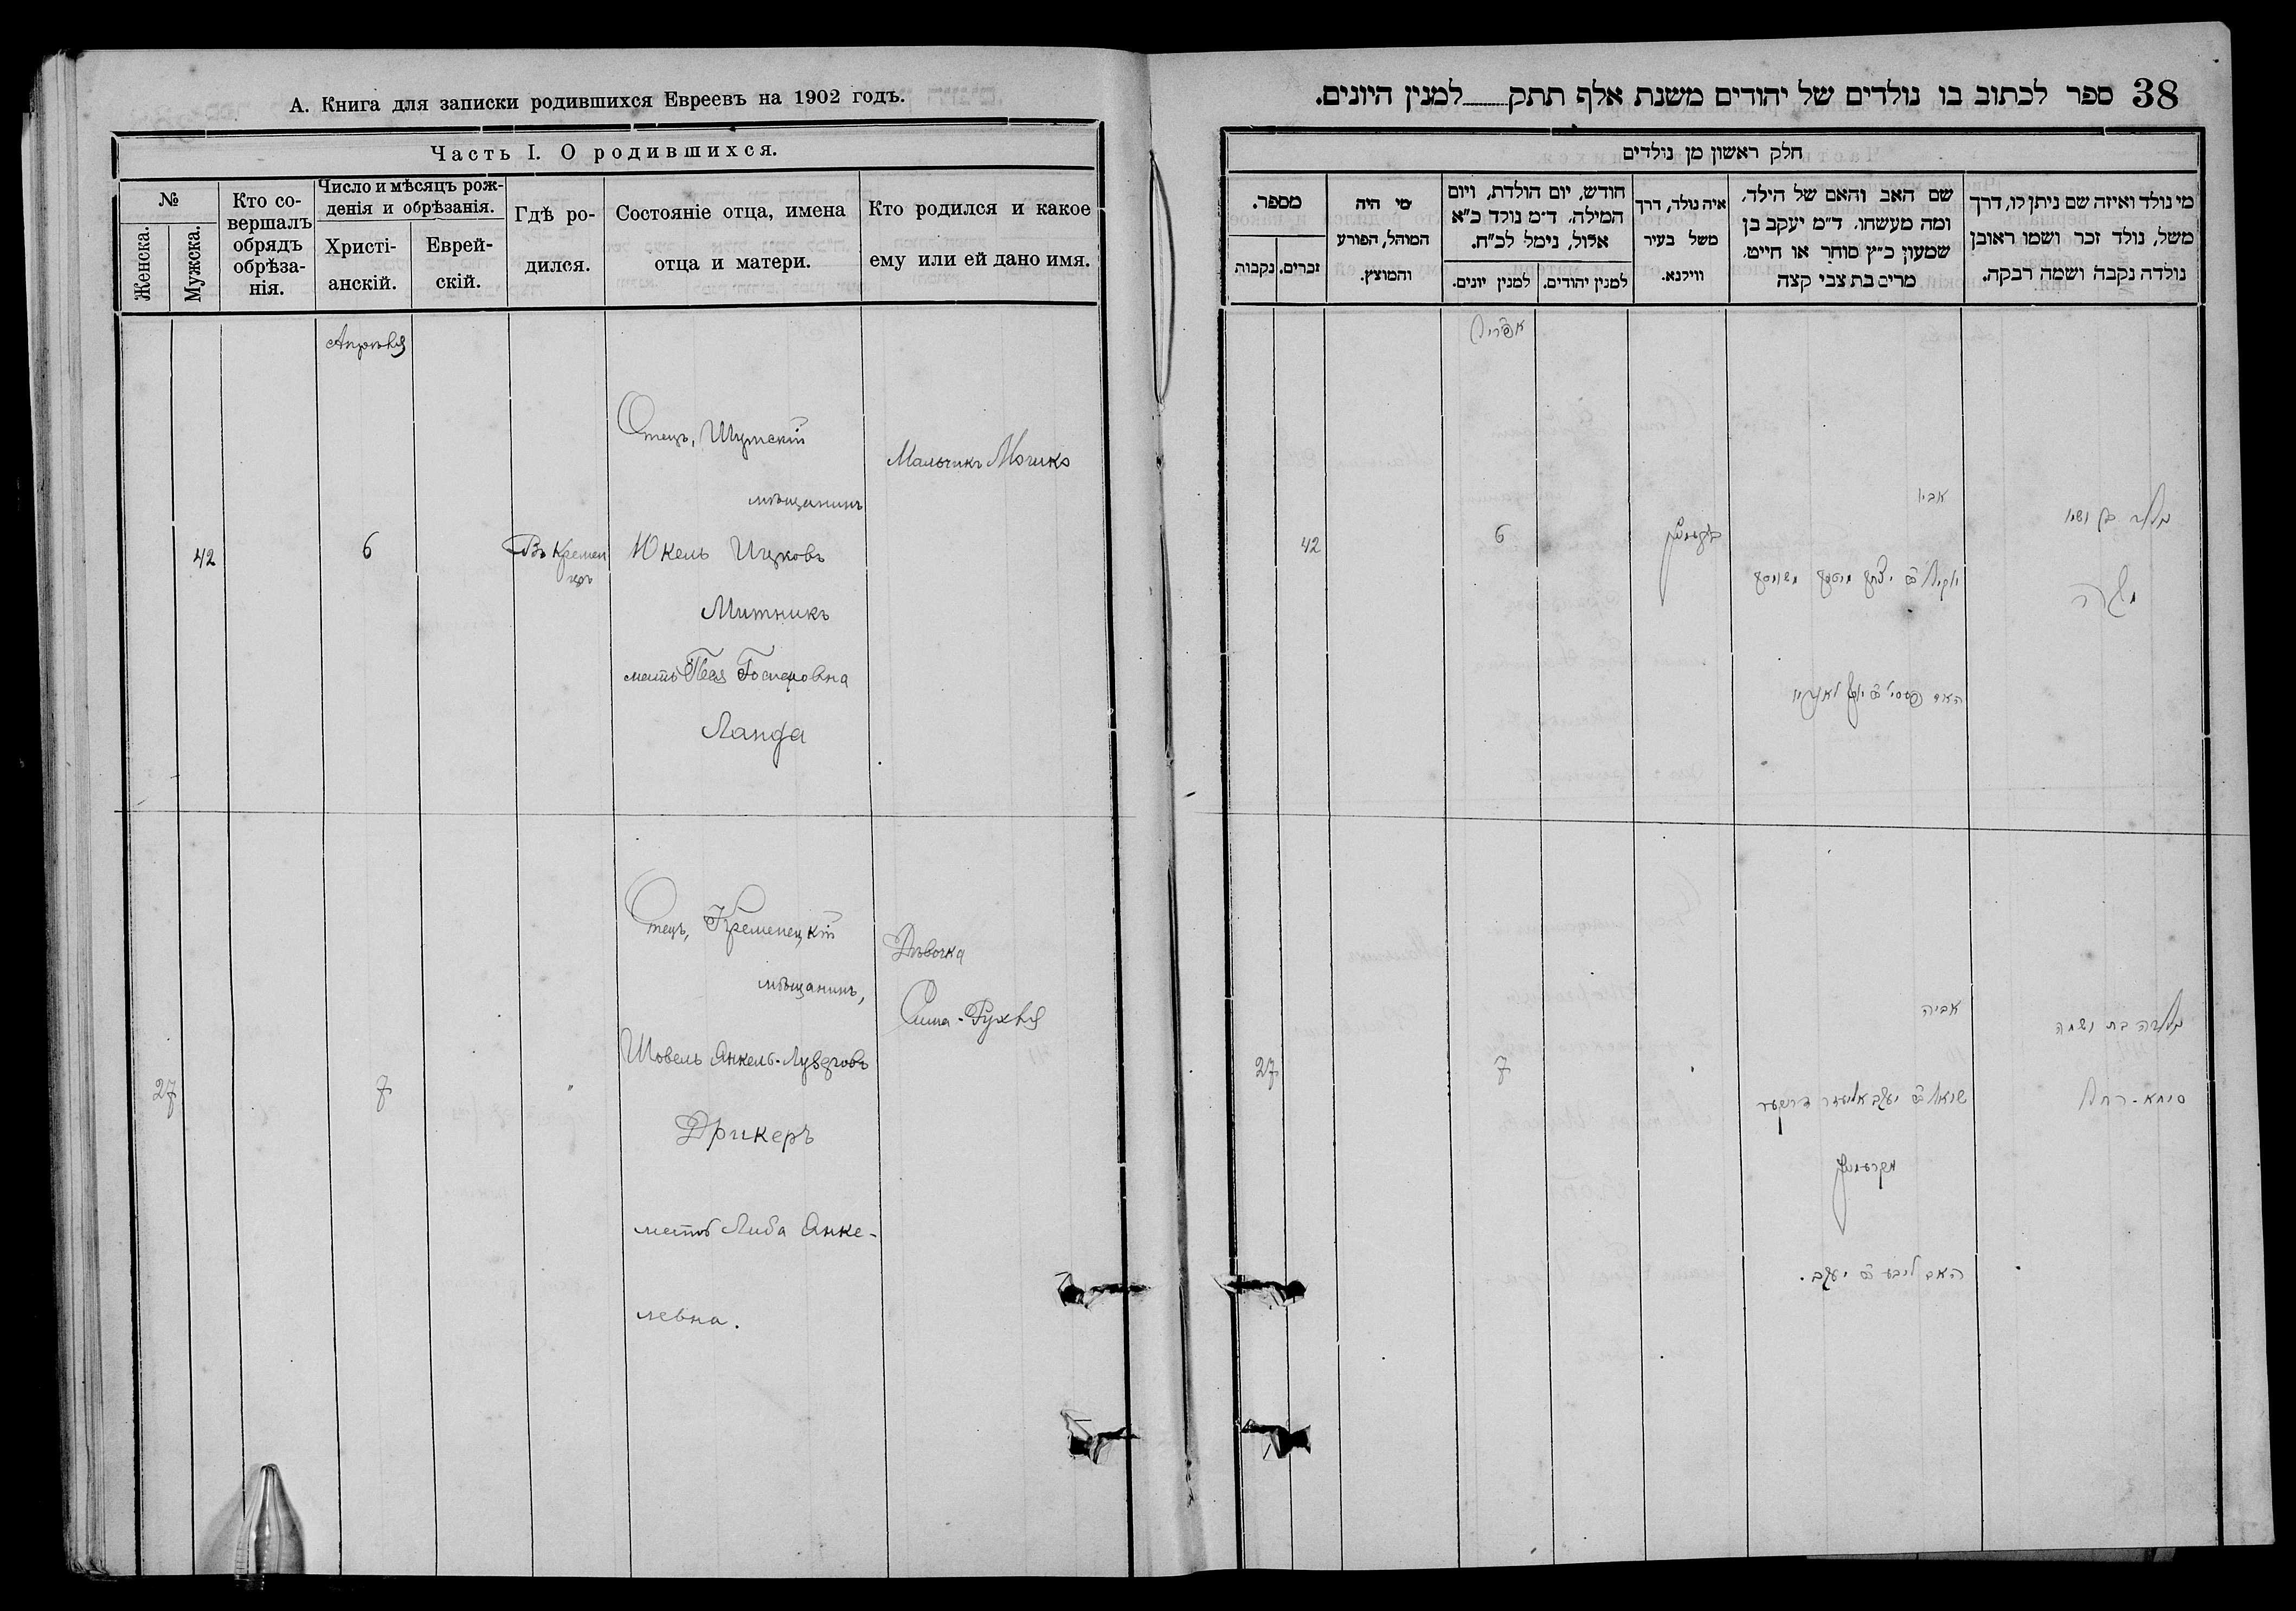 А. Книга для записки родившихся Евреевъ на 1902 годъ.
Часть I. О родившихся.
№
Женска.
Мужска.
Кто со-
вершалъ
обрядъ
обрѣза-
нія.
Число и мѣсяцъ рож-
денія и обрѣзанія.
Христі-
анскій.
Еврей-
скій.
Гдѣ ро-
дился.
Состояніе отца, имена
отца и матери.
Кто родился и какое
ему или ей дано имя.
Апрѣля
42
6
Въ Кремен
цѣ
Отецъ, Шумскій
мѣщанинъ
Юкель Ицковъ
Митникъ
мать Песя
Ланда
Мальчикъ
27
7
"
Отецъ, Кременецкій
мѣщанинъ,
Шовель Анкель-
Дрикеръ
мать Либа Анке-
левна.
Дѣвочка
Сима-Рухля
38 ספר לכתוב בו נולדים של יהודים משנת אלף תתק למנין היונים.
חלק ראשון מן נולדים
מי נולד ואיזה שם ניתן לו, דרך
משל, נולד זכר ושמו ראובן
נולדה נקבה ושמה רבקה.
שם האב והאם של הילד,
ומה מעשהו, ד״מ יעקב בן
שמעון כ״ץ סוחר או חייט,
מרים בת צבי קצה
איה נולד, דרך
משל בעיר
ווילנא.
חודש, יום הולדת, ויום
המילה, ד״מ נולד כ״א
אלול, נימל לכ״ח.
למנין יהודים.
למנין יונים.
מי היה
המוהל, הפורע
והמוצץ.
מספר.
זכרים.
נקבות
אפריל
נולד בן ושמו
אביו
6
42
האם
נולדה בת ושמה
סימא - רחל
אביה
שואל ב״ר יעקב אליעזר דריקער
מקרעמניץ
האם ליבע ב״ר יעקב.
7
27